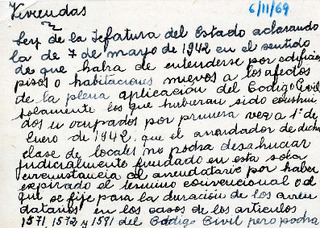 Viviendas
6/11/69
Ley de la Jefatura del Estado aclarando
la de 7 de mayo de 1942 en el sentido
de que habra de entenderse por edificios
pisos o habitaciones nuevos a los efectos
de la plena aplicación del Codigo Civil
solamente los que hubieran sido construi
dos u ocupados por primera vez a 1º de
Enero de 1942, que el arrendador de dicha
clase de locales no podra desahuciar
judicialmente fundado en esta sola
circunstancia al arrendatario por haber
expirado el termino convencional o el
que se fije para la duracion de los arren
datarios en los casos de los articulos
1571, 1572 y 1581 del Codigo Civil pero podra